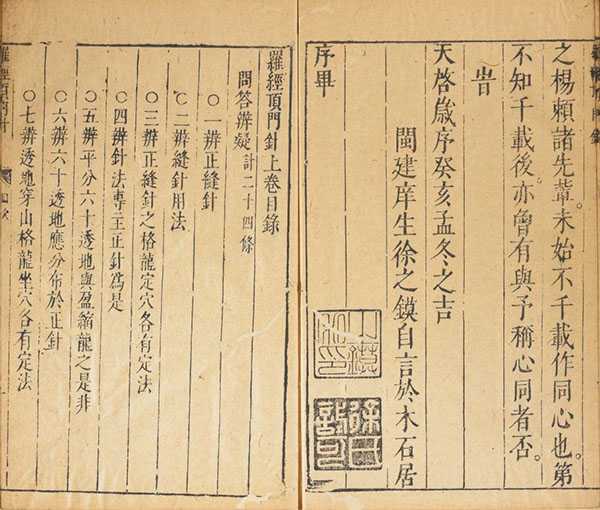 之楊賴諸先輩。未始不千載作同心也。第
不知千載後。亦曾有與予稱心同者否。
旹
天啓歲序癸亥孟冬之吉
閩建庠生徐之鏌自言於木石居
序畢
羅經頂門針上卷目錄
問答辨疑 計二十四條
○一辨正縫針
○二辨縫針用法
○三辨正縫針之格龍定穴各有定法
○四辨針法專主正針爲是
○五辨平分六十透地與盈縮龍之是非
○六辨六十透地應分布於正針
○七辨透地穿山格龍坐穴各有定法